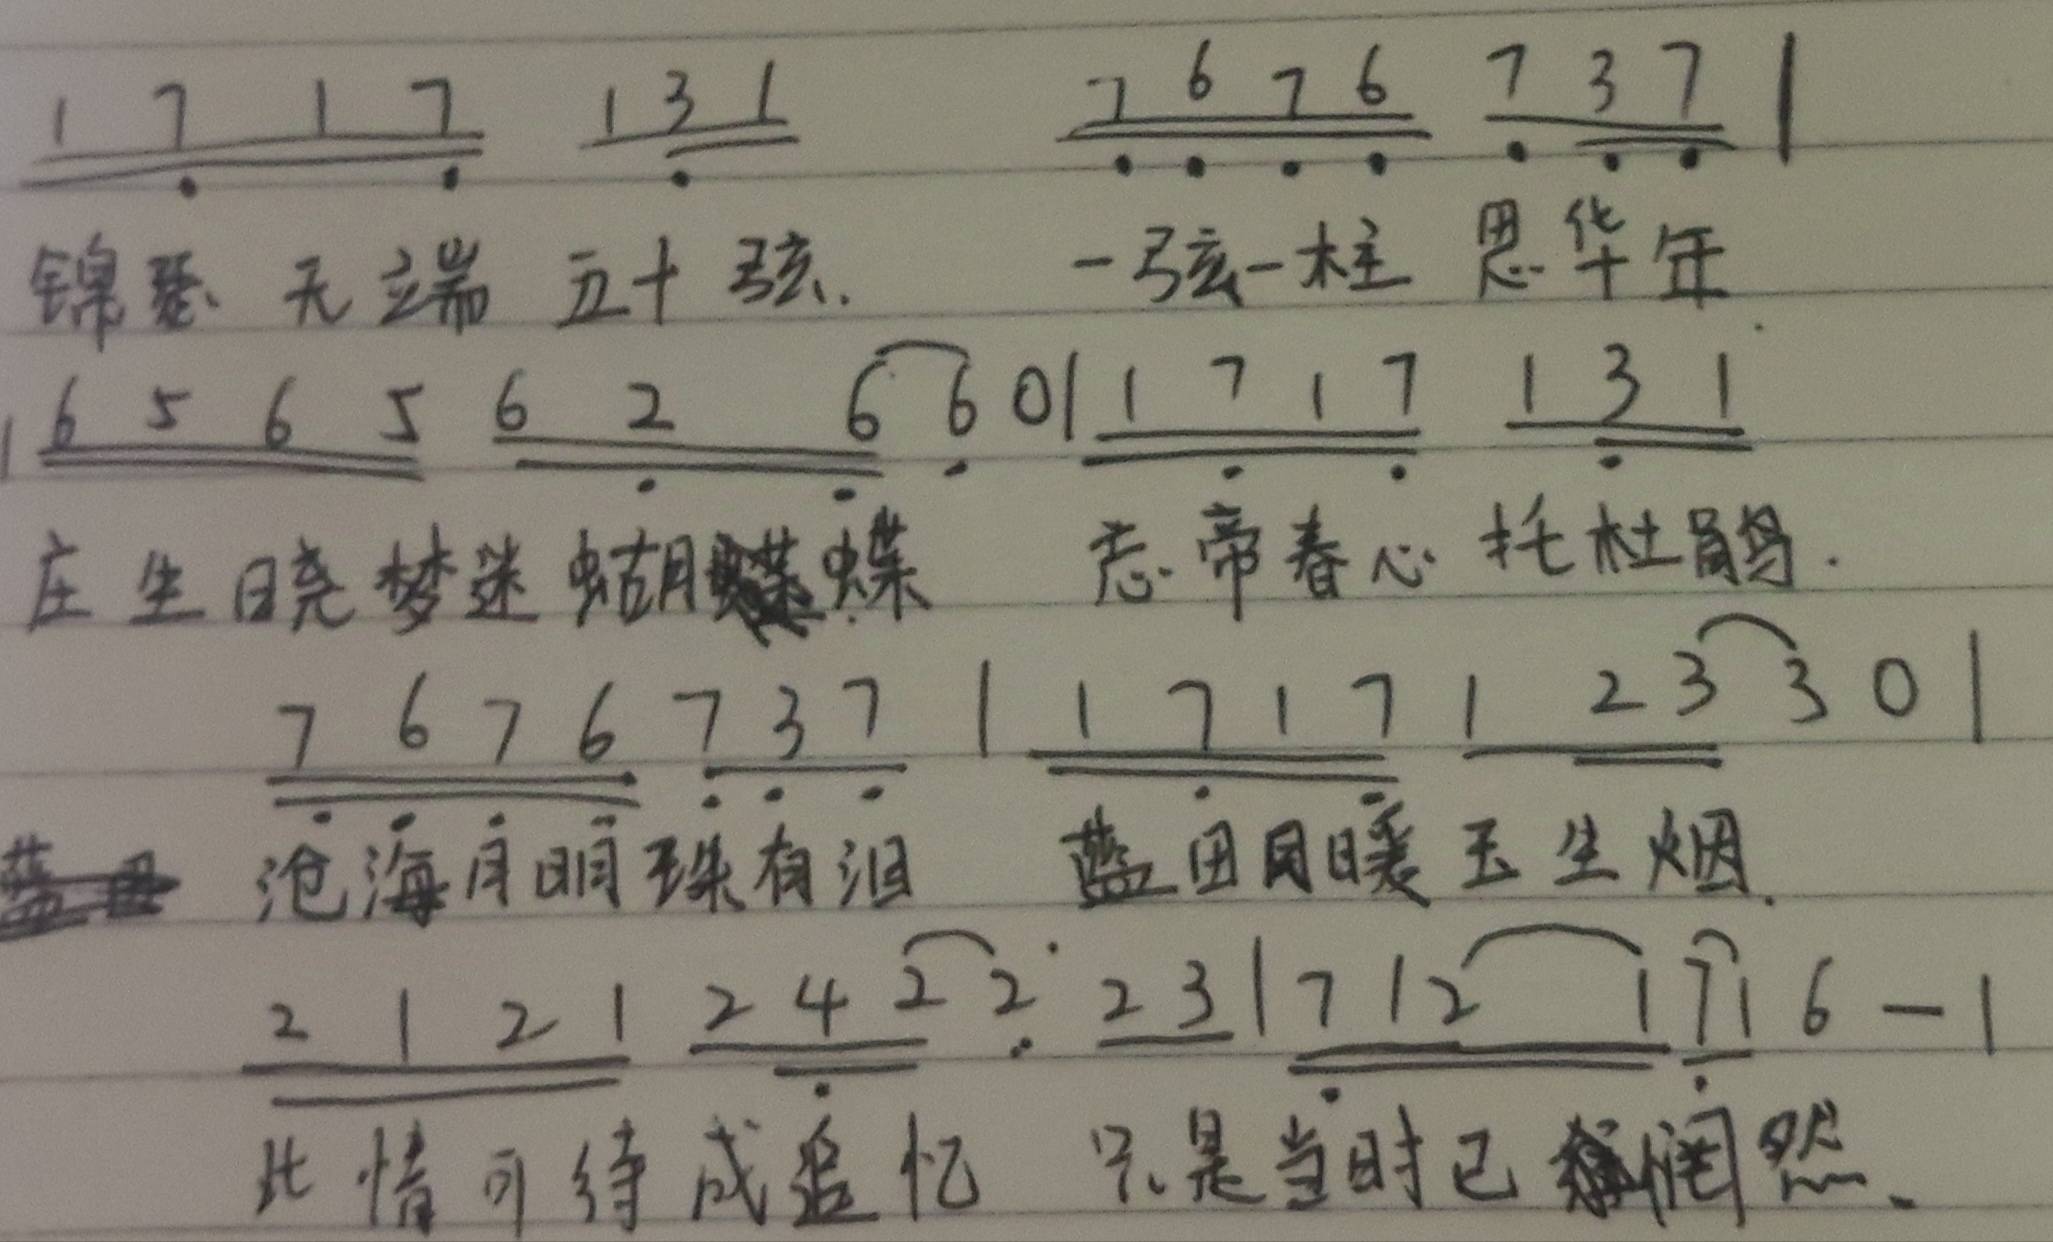 1 7 1 7 1 3 1 7 6 7 6 7 3 7 |
锦瑟无端五十弦. 一弦一柱思华年
| 6 5 6 5 6 2 6 6 0 | 1 7 1 7 1 3 1
庄生晓梦迷蝴蝶 忘帝春心托杜鹃.
7 6 7 6 7 3 7 | 1 7 1 7 1 2 3 3 0 |
沧海月明珠有泪 蓝田日暖玉生烟.
2 1 2 1 2 4 2 2· 2 3 | 7 1 2 1 7 1 6 — |
此情可待成追忆 只是当时已惘然.